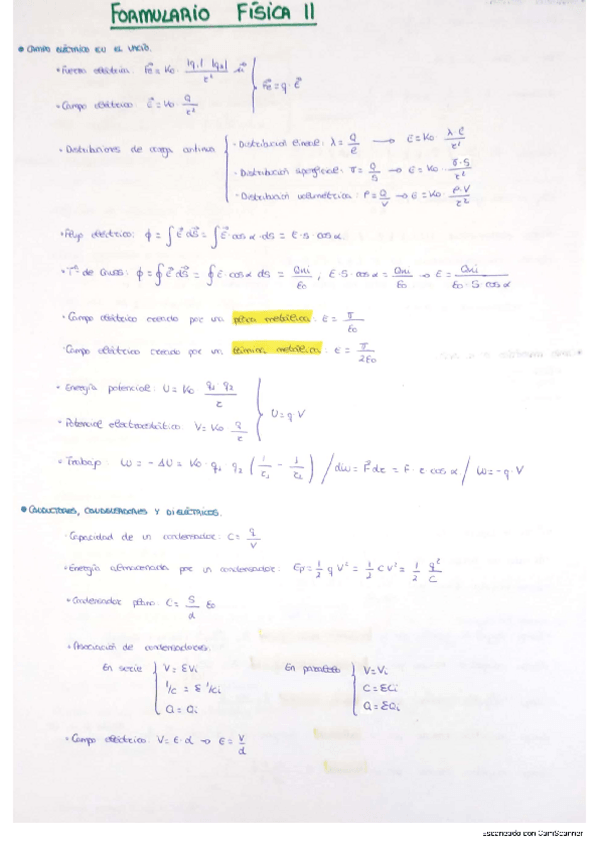 FORMULARIO FÍSICA II
• CAMPO ELÉCTRICO EN EL VACÍO.
• Fuerza eléctrica: F⃗e = K₀ · |q₁| |q₂| / r² u⃗r
F⃗e = q · E⃗
• Campo eléctrico: E⃗ = K₀ · q / r²
• Distribuciones de carga continua
· Distribución lineal: λ = Q/ℓ → E = K₀ · λ·ℓ / r²
· Distribución superficial: σ = Q/S → E = K₀ · σ·S / r²
· Distribución volumétrica: ρ = Q/V → E = K₀ · ρ·V / r²
• Flujo eléctrico: ϕ = ∫ E⃗ dS⃗ = ∫ E⃗ cos α · ds = E · S · cos α
• Tª de Gauss: ϕ = ∮ E⃗ dS⃗ = ∮ E · cos α ds = Qni / ε₀ ; E · S · cos α = Qni / ε₀ → E = Qni / ε₀ · S cos α
• Campo eléctrico creado por una placa metálica: E = σ / ε₀
· Campo eléctrico creado por una lámina metálica: E = σ / 2ε₀
• Energía potencial: U = K₀ q₁ q₂ / r
U = q V
• Potencial electrostático: V = K₀ q / r
• Trabajo: W = - ΔU = K₀ · q₁ q₂ ( 1/r₁ - 1/r₂ ) / dW = F⃗ dr = F · r cos α / W = -q · V
• CONDUCTORES, CONDENSADORES Y DIELÉCTRICOS.
· Capacidad de un condensador: C = q / V
• Energía almacenada por un condensador: Ep = 1/2 q V² = 1/2 C V² = 1/2 q² / C
• Condensador plano: C = S / d ε₀
• Asociación de condensadores:
En serie En paralelo
V = ΣVi V = Vi
1/C = Σ 1/Ci C = ΣCi
Q = Qi Q = ΣQi
• Campo eléctrico: V = E · d → E = V / d
Escaneado con CamScanner